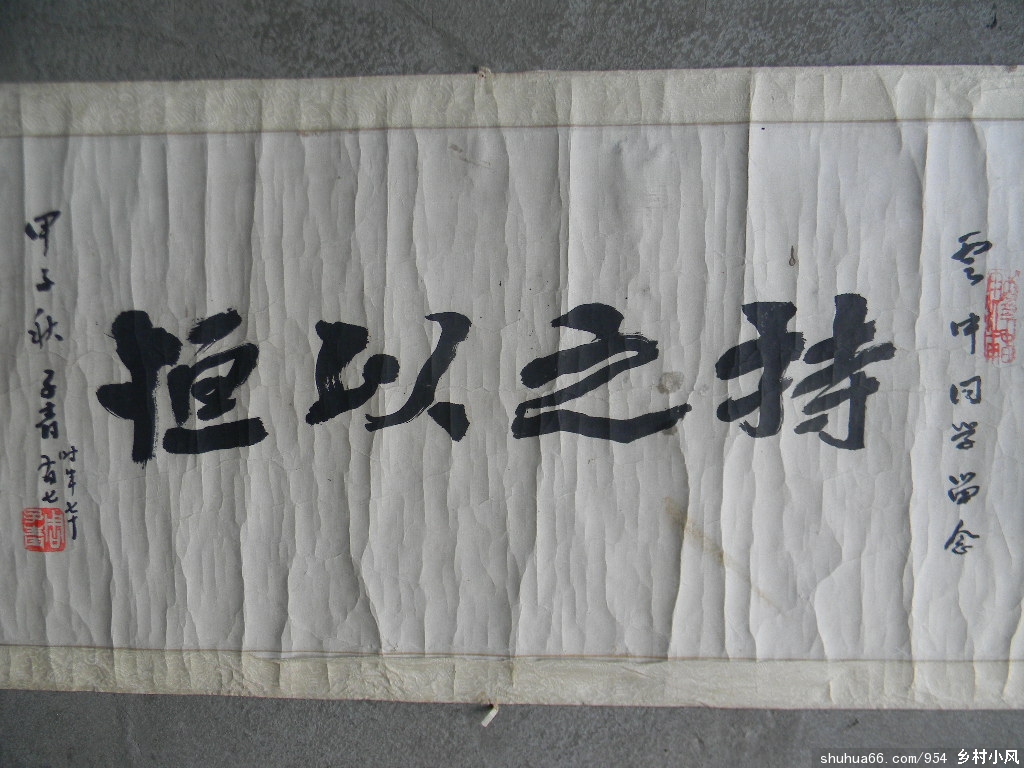 雲中同学留念
持之以恒
甲子秋 子青
时年七十有七
shuhua66.com/954 乡村小风